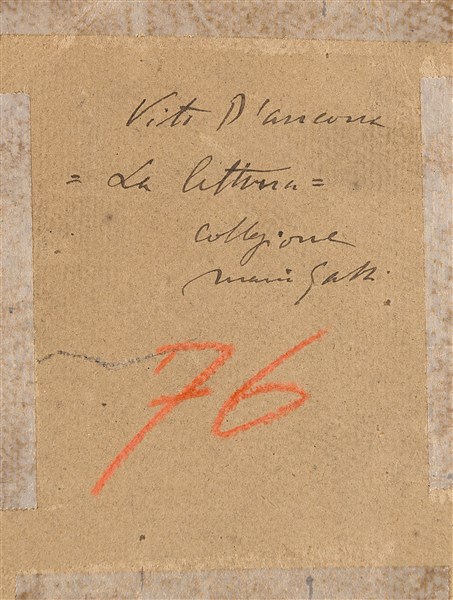 Vito D'ancona
= La lettura =
collezione
Mario Galli
76